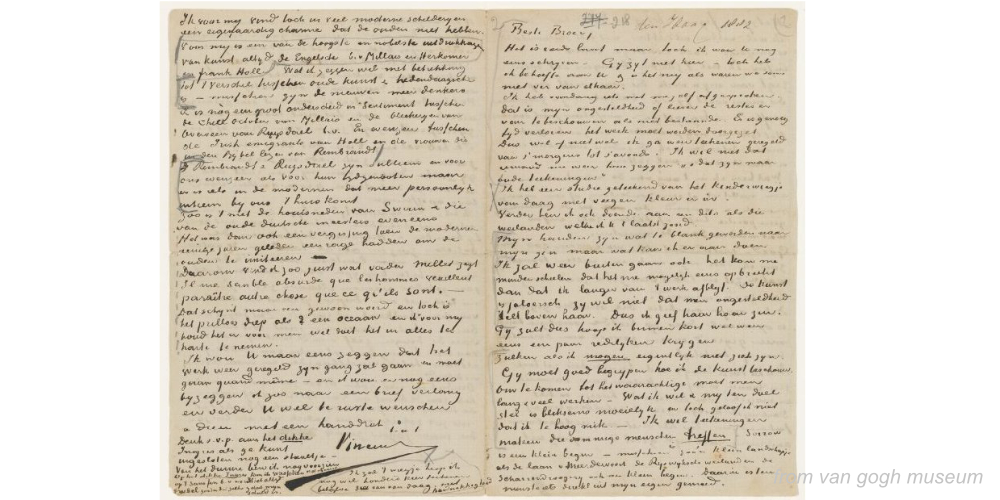 Ik voor mij vind toch in veel moderne schilderijen
een eigenaardig charme dat de ouden niet hebben.
Voor mij is een van de hoogste en nobelste uitdrukkingen
van kunst altijd de Engelsche b.v. Millais en Herkomer
en Frank Holl. Wat ik zeggen wil met betrekking
tot 't verschil tusschen oude kunst & hedendaagsche
is – misschien zijn de nieuwen meer denkers
Er is nog een groot onderscheid in Sentiment tusschen
de Chill October van Millais en de bleekerijen van
Overveen van Ruysdael b.v. En evenzeer tusschen
de Irish emigrants van Holl en de vrouwen die
uit den Bijbel lezen van Rembrandt
Rembrandt & Ruysdael zijn sublime en voor
ons evenzeer als voor hun tijdgenooten maar
er is iets in de modernen dat meer persoonlijk
intiem bij ons t'huis komt
Zoo is 't met de houtsneden van Swain & die
van de oude duitsche meesters eveneens
Het was dan ook een vergissing toen de modernen
eenige jaren geleden een rage hadden om de
ouden te imiteren –
Daarom vind ik zoo juist wat vader Millet zegt
Il me semble absurde que les hommes veuillent
paraître autre chose que ce qu'ils sont. –
Dat schijnt maar een gewoon woord en toch is
het peilloos diep als een oceaan en ik voor mij
houd het er voor men wel doet het in alles ter
harte te nemen.
Ik wou U maar eens zeggen dat het
werk weer geregeld zijn gang zal gaan en moet
gaan quand même – en ik wou er nog eens
bij zeggen ik zoo naar een brief verlang
en verder U wel te ruste wenschen
adieu met een handdruk t. à t.
Vincent
Denk s.v.p. aan het dikke
Ingres als ge kunt
ingesloten nog een staaltje –
Van het dunne ben ik nog voorzien
Beste Broer,
Het is reeds laat maar toch ik wou U nog
eens schrijven – Gij zijt niet hier – doch het
ik behoefte voor U & is het mij als waren we soms
niet ver van elkaar.
Ik heb vandaag iets met mijzelf afgesproken
dat is mijn ongesteldheid of liever de resten er
van te beschouwen als niet bestaande. Er is genoeg
tijd verloren het werk moet worden doorgezet.
Dus wel of niet wel ik ga weer teekenen geregeld
van 's morgens tot 's avonds. Ik wil niet dat
iemand me weer kan zeggen o dat zijn maar
oude teekeningen"
Ik heb een studie geteekend van het kinderwiegje
van daag met vegen kleur er in.
Verder ben ik ook doende aan een dito als die
weilanden welke ik 't laatst zond
Mijn handen zijn wat te blank geworden naar
mijn zin maar wat kan ik er aan doen
Ik zal weer buiten gaan ook het kan me
minder schelen dat het me mogelijk eens opbreekt
dan dat ik langer van 't werk afblijf. De kunst
is jaloersch, zij wil niet dat men ongesteldheid
stelt boven haar. Dus ik geef haar haar zin.
Gij zult dus hoop ik binnen kort wel weer
eens een paar redelijken krijgen
Zulken als ik mogen eigentlijk niet ziek zijn.
Gij moet goed begrijpen hoe ik de kunst beschouw.
Om te komen tot het waarachtige moet men
lang & veel werken – Wat ik wil & mij ten doel
stel is bliksems moeielijk en toch geloof ik niet
dat ik te hoog mik – Ik wil teekeningen
maken die sommige menschen treffen Sorrow
is een klein begin – misschien zoo'n klein landschapje
als de laan v Meerdervoort de Rijswijksche weilanden de
Scharrendroogerij ook klein begin – Daarin is ten
minste iets direkt uit mijn eigen gemoed.
van gogh museum